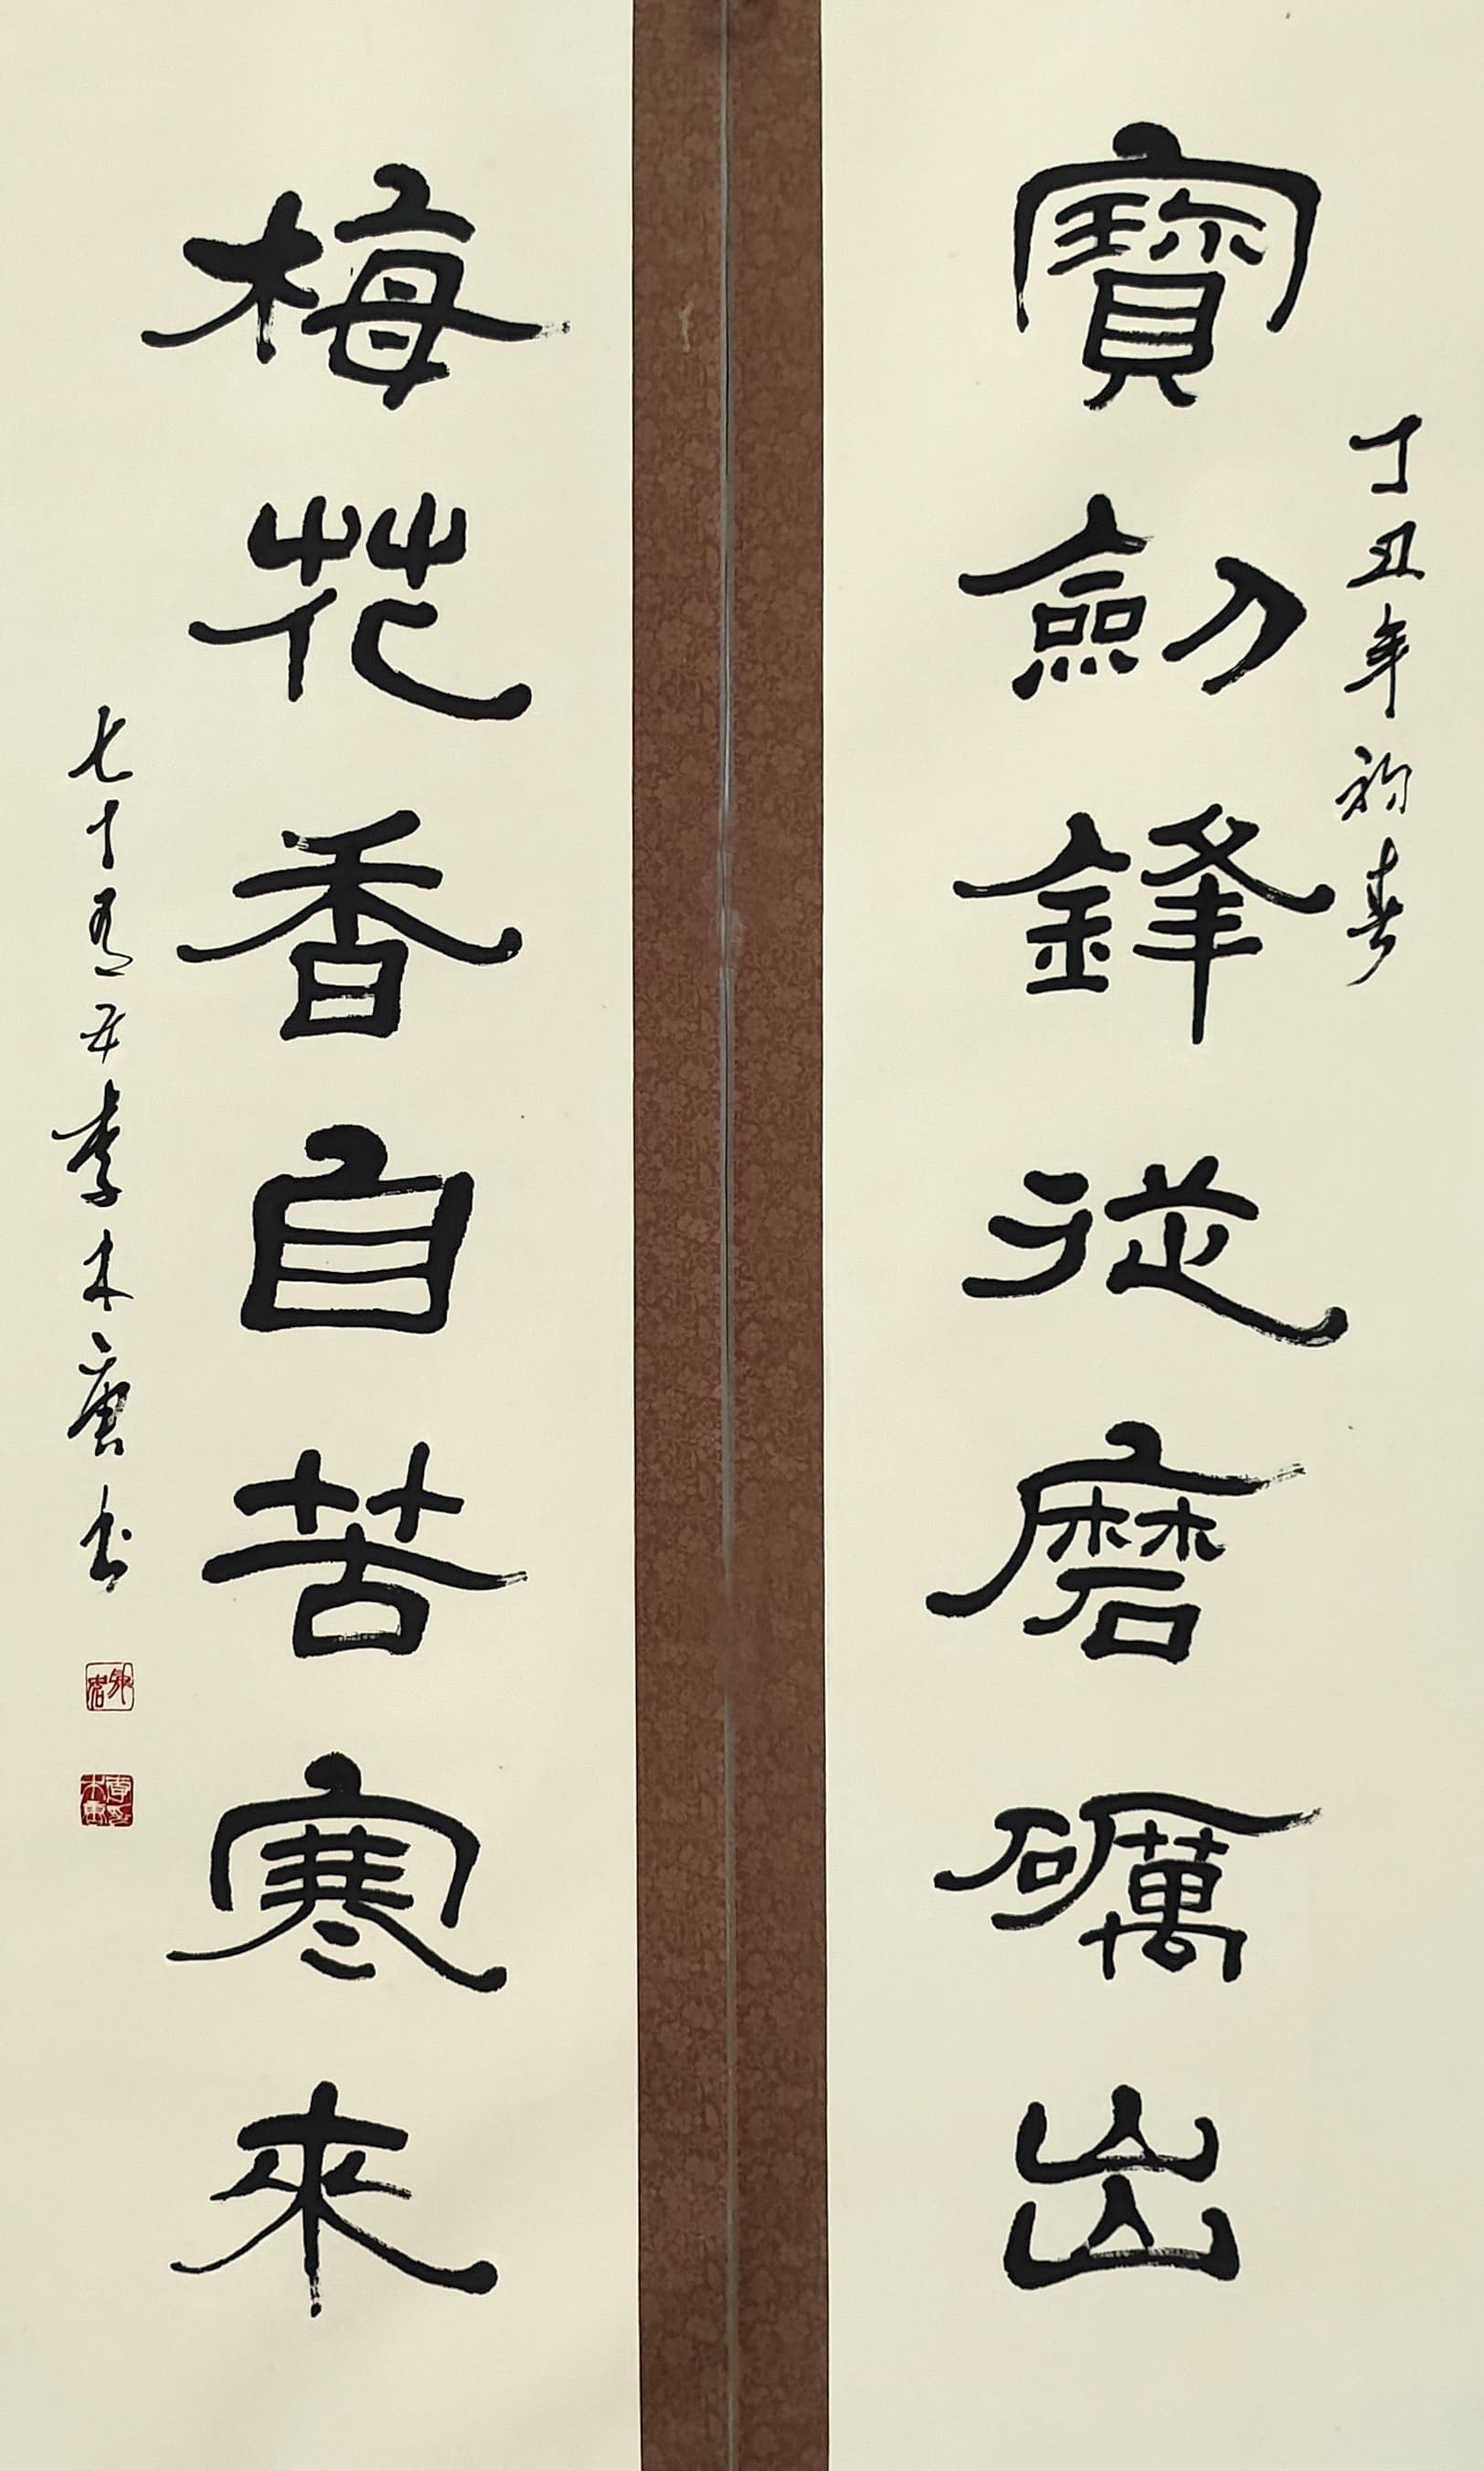 丁丑年初春
寶劍鋒從磨礪出
梅花香自苦寒來
七十有五李木唐书